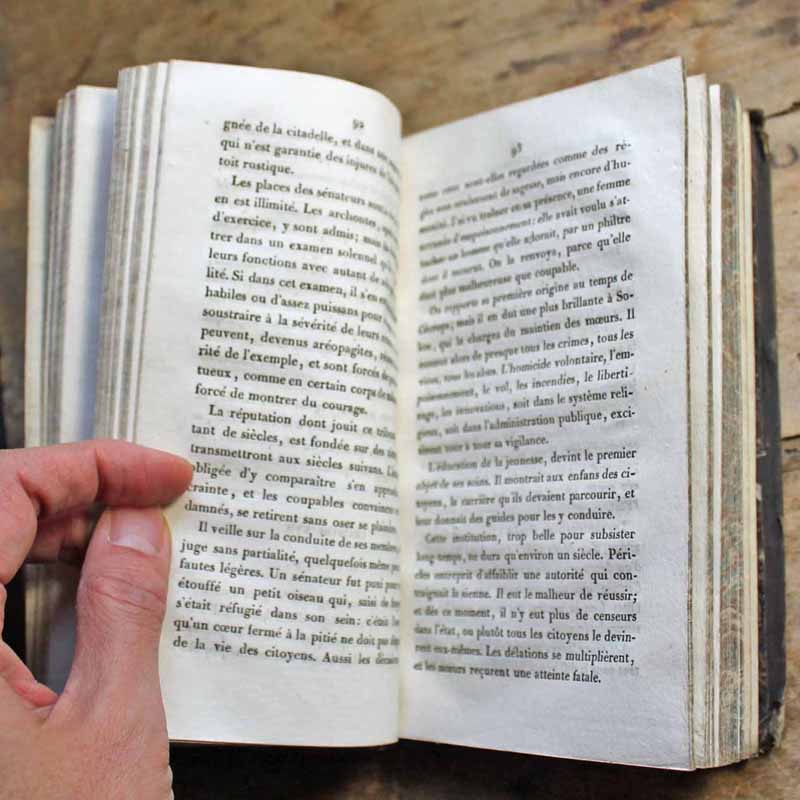 92
gnée de la citadelle, et dans
qui n'est garantie des injures de
toit rustique.
Les places des sénateurs sont
en est illimité. Les archontes,
d'exercice, y sont admis; mais
trer dans un examen solennel
leurs fonctions avec autant de
lité. Si dans cet examen, il s'en
habiles ou d'assez puissans pour
soustraire à la sévérité de leurs
peuvent, devenus aréopagites,
rité de l'exemple, et sont forcés de
tueux, comme en certain corps de
forcé de montrer du courage.
La réputation dont jouit ce
tant de siècles, est fondée sur des
transmettront aux siècles suivans.
obligée d'y comparaître s'en
crainte, et les coupables
damnés, se retirent sans oser se
Il veille sur la conduite de ses
juge sans partialité, quelquefois même
fautes légères. Un sénateur fut puni
étouffé un petit oiseau qui, saisi de
s'était réfugié dans son sein: c'était
qu'un cœur fermé à la pitié ne doit pas
de la vie des citoyens. Aussi les
93
sont-elles regardées comme des ré-
plus seulement de sagesse, mais encore d'hu-
manité. J'ai vu traîner en sa présence, une femme
d'empoisonnement: elle avait voulu s'at-
un homme qu'elle adorait, par un philtre
dont il mourut. On la renvoya, parce qu'elle
était plus malheureuse que coupable.
On rapporte sa première origine au temps de
Cécrops; mais il en dut une plus brillante à So-
lon, qui le chargea du maintien des mœurs. Il
connut alors de presque tous les crimes, tous les
vices, tous les abus. L'homicide volontaire, l'em-
poisonnement, le vol, les incendies, le liberti-
nage, les innovations, soit dans le système reli-
gieux, soit dans l'administration publique, exci-
tèrent tour à tour sa vigilance.
L'éducation de la jeunesse, devint le premier
objet de ses soins. Il montrait aux enfans des ci-
toyens, la carrière qu'ils devaient parcourir, et
leur donnait des guides pour les y conduire.
Cette institution, trop belle pour subsister
long-temps, ne dura qu'environ un siècle. Péri-
clès entreprit d'affaiblir une autorité qui con-
traignait la sienne. Il eut le malheur de réussir;
et dès ce moment, il n'y eut plus de censeurs
dans l'état, ou plutôt tous les citoyens le devin-
rent eux-mêmes. Les délations se multiplièrent,
et les mœurs reçurent une atteinte fatale.